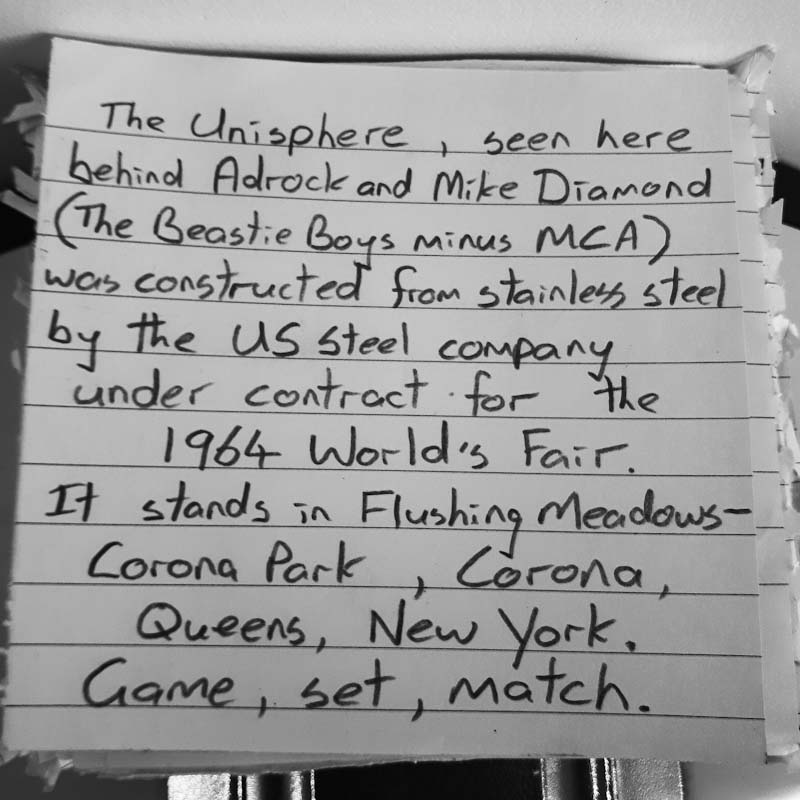 The Unisphere, seen here
behind Adrock and Mike Diamond
(The Beastie Boys minus MCA)
was constructed from stainless steel
by the US Steel company
under contract for the
1964 World's Fair.
It stands in Flushing Meadows-
Corona Park, Corona,
Queens, New York.
Game, set, match.